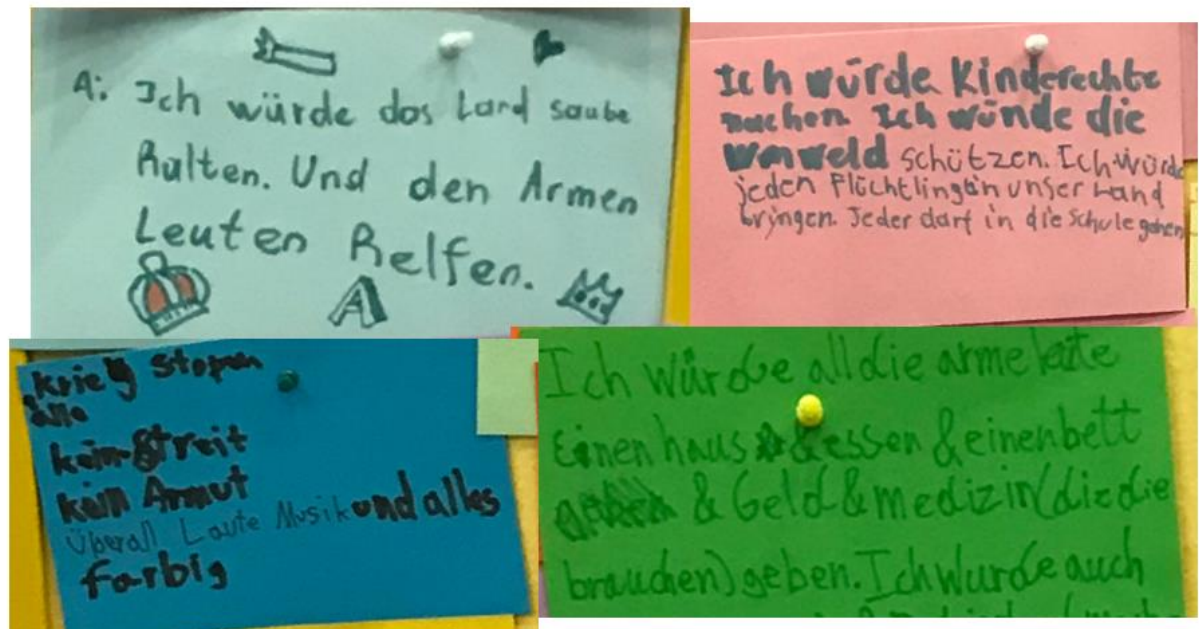 A: Ich würde das Land saube
Halten. Und den Armen
Leuten Helfen.
A
Ich würde Kinderechte
machen. Ich würde die
Umweld schützen. Ich würde
jeden Flüchtling in unser Land
bringen. Jeder darf in die Schule gehen
krieg stopen
alle
kein Streit
kein Armut
Überall Laute Musik und alles
farbig
Ich würde all die arme leute
Einen haus & essen & einen bett
& Geld & medizin (die die
brauchen) geben. Ich wurde auch